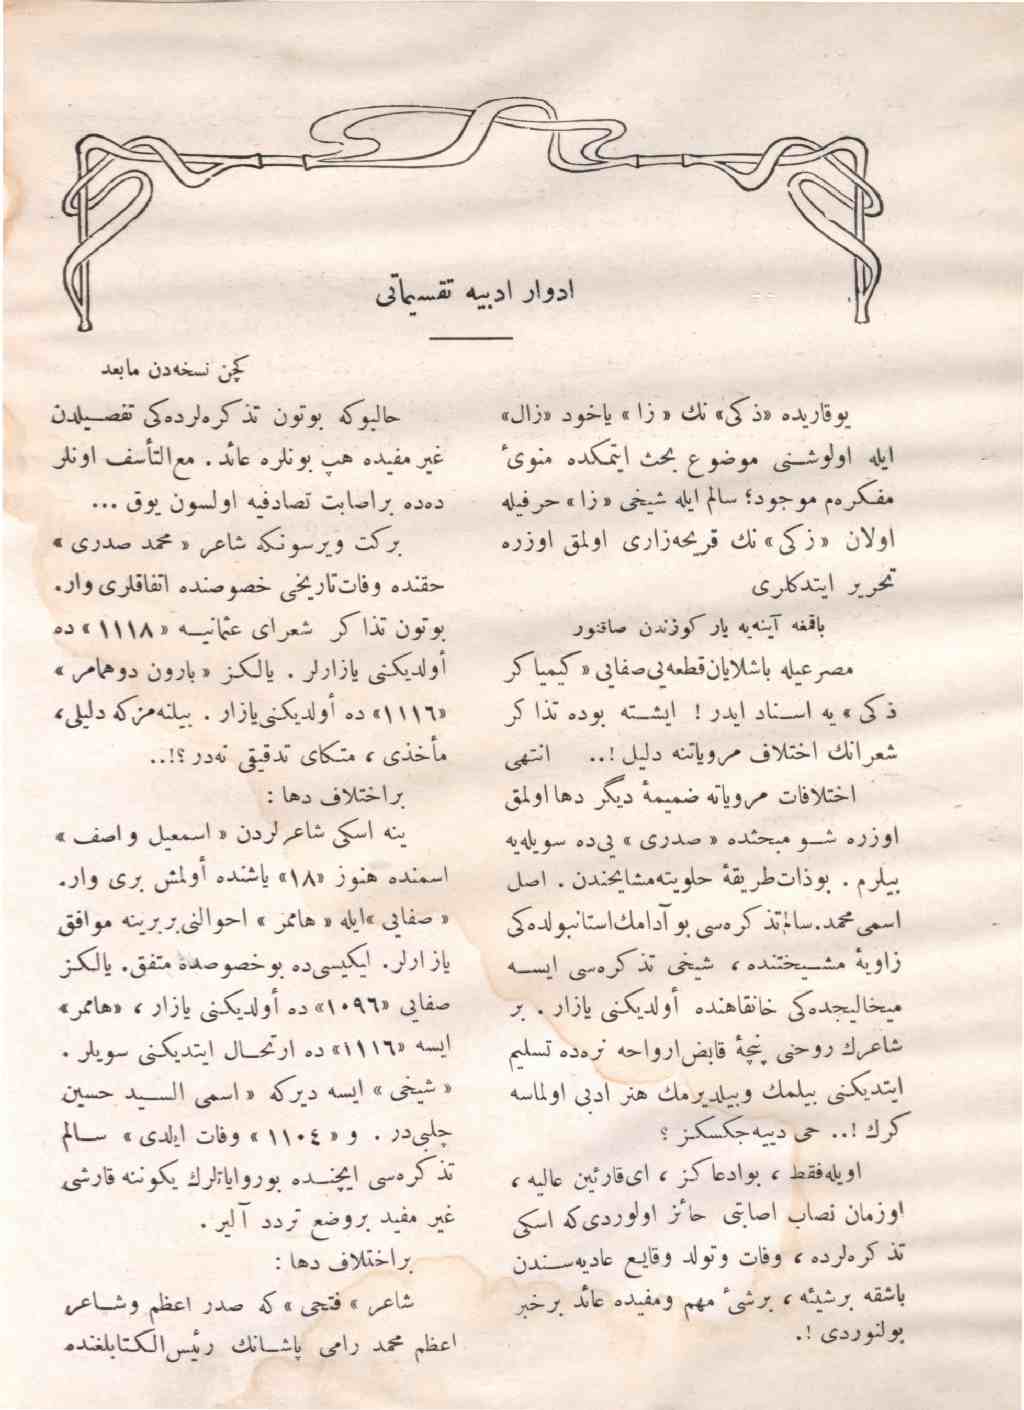 ادوار ادبیه تقسیماتی
کچن نسخه‌دن مابعد
یوقاریده «ذکی» نك « زا » یاخود «زال»
ایله اولوشنی موضوع بحث ایتمکده منوئ
مفکره‌م موجود؛ سالم ایله شیخی «زا» حرفیله
اولان «زکی» نك قریحه‌زاری اولمق اوزره
تحریر ایتدکلری
باقمغه آینه‌یه یار کوزندن صاقنور
مصرعیله باشلایان قطعه‌یی صفایی « کیمیا کر
ذکی » یه اسناد ایدر ! ایشته بوده تذا کر
شعرانك اختلاف مرویاتنه دلیل !.. انتهی
اختلافات مرویاته ضمیمهٔ دیگر دها اولمق
اوزره شو مبحثده « صدری » یی‌ده سویله‌یه
بیلرم . بوذات طریقهٔ خلوتیه مشایخندن . اصل
اسمی محمد. سالم تذکره‌سی بو آدامك استانبولده‌کی
زاویهٔ مشیختنده ، شیخی تذکره‌سی ایسه
میخالیجده‌کی خانقاهنده أولدیکنی یازار . بر
شاعرك روحنی پنچهٔ قابض ارواحه نره‌ده تسلیم
ایتدیکنی بیلمك وبیلدیرمك هنر ادبی اولماسه
کرك !.. حی دییه‌جکسکز ؟
اویله فقط ، بوادعا کز ، ای قارئین عالیه ،
اوزمان نصاب اصابتی حائز اولوردی که اسکی
تذکره‌لرده ، وفات وتولد وقایع عادیه‌سندن
باشقه برشیئه ، برشئ مهم ومفیده عائد برخبر
بولنوردی !.
حالبوکه بوتون تذکره‌لرده‌کی تفصیلدن
غیر مفیده هپ بونلره عائد . مع التأسف اونلر
ده‌ده براصابت تصادفیه اولسون یوق ...
برکت ویرسونکه شاعر « محمد صدری »
حقنده وفات تاریخی خصوصنده اتفاقلری وار.
بوتون تذاکر شعرای عثمانیه «۱۱۱۸» ده
أولدیکنی یازارلر . یالکز « بارون دوهامر »
«۱۱۱٦» ده أولدیکنی یازار . بیلنه‌مزکه دلیلی،
مأخذی ، متکای تدقیقی نه‌در ؟!..
براختلاف دها :
ینه اسکی شاعرلردن « اسمعیل واصف »
اسمنده هنوز «۱۸» یاشنده أولمش بری وار.
« صفایی » ایله « هامر » احوالنی بربرینه موافق
یازارلر. ایکیسی‌ده بوخصوصده متفق. یالکز
صفایی «۱۰۹٦» ده أولدیکنی یازار ، «هامر»
ایسه «۱۱۱٦» ده ارتحال ایتدیکنی سویلر .
« شیخی » ایسه دیرکه « اسمی السید حسین
چلبی در . و « ۱۱۰٤ » وفات ایلدی » سالم
تذکره‌سی ایچنده بوروایاتلرك یکوننه قارشی
غیر مفید بروضع تردد آلیر .
براختلاف دها :
شاعر » فتحی » که صدر اعظم وشاعر
اعظم محمد رامی پاشانك رئیس الکتابلغنده